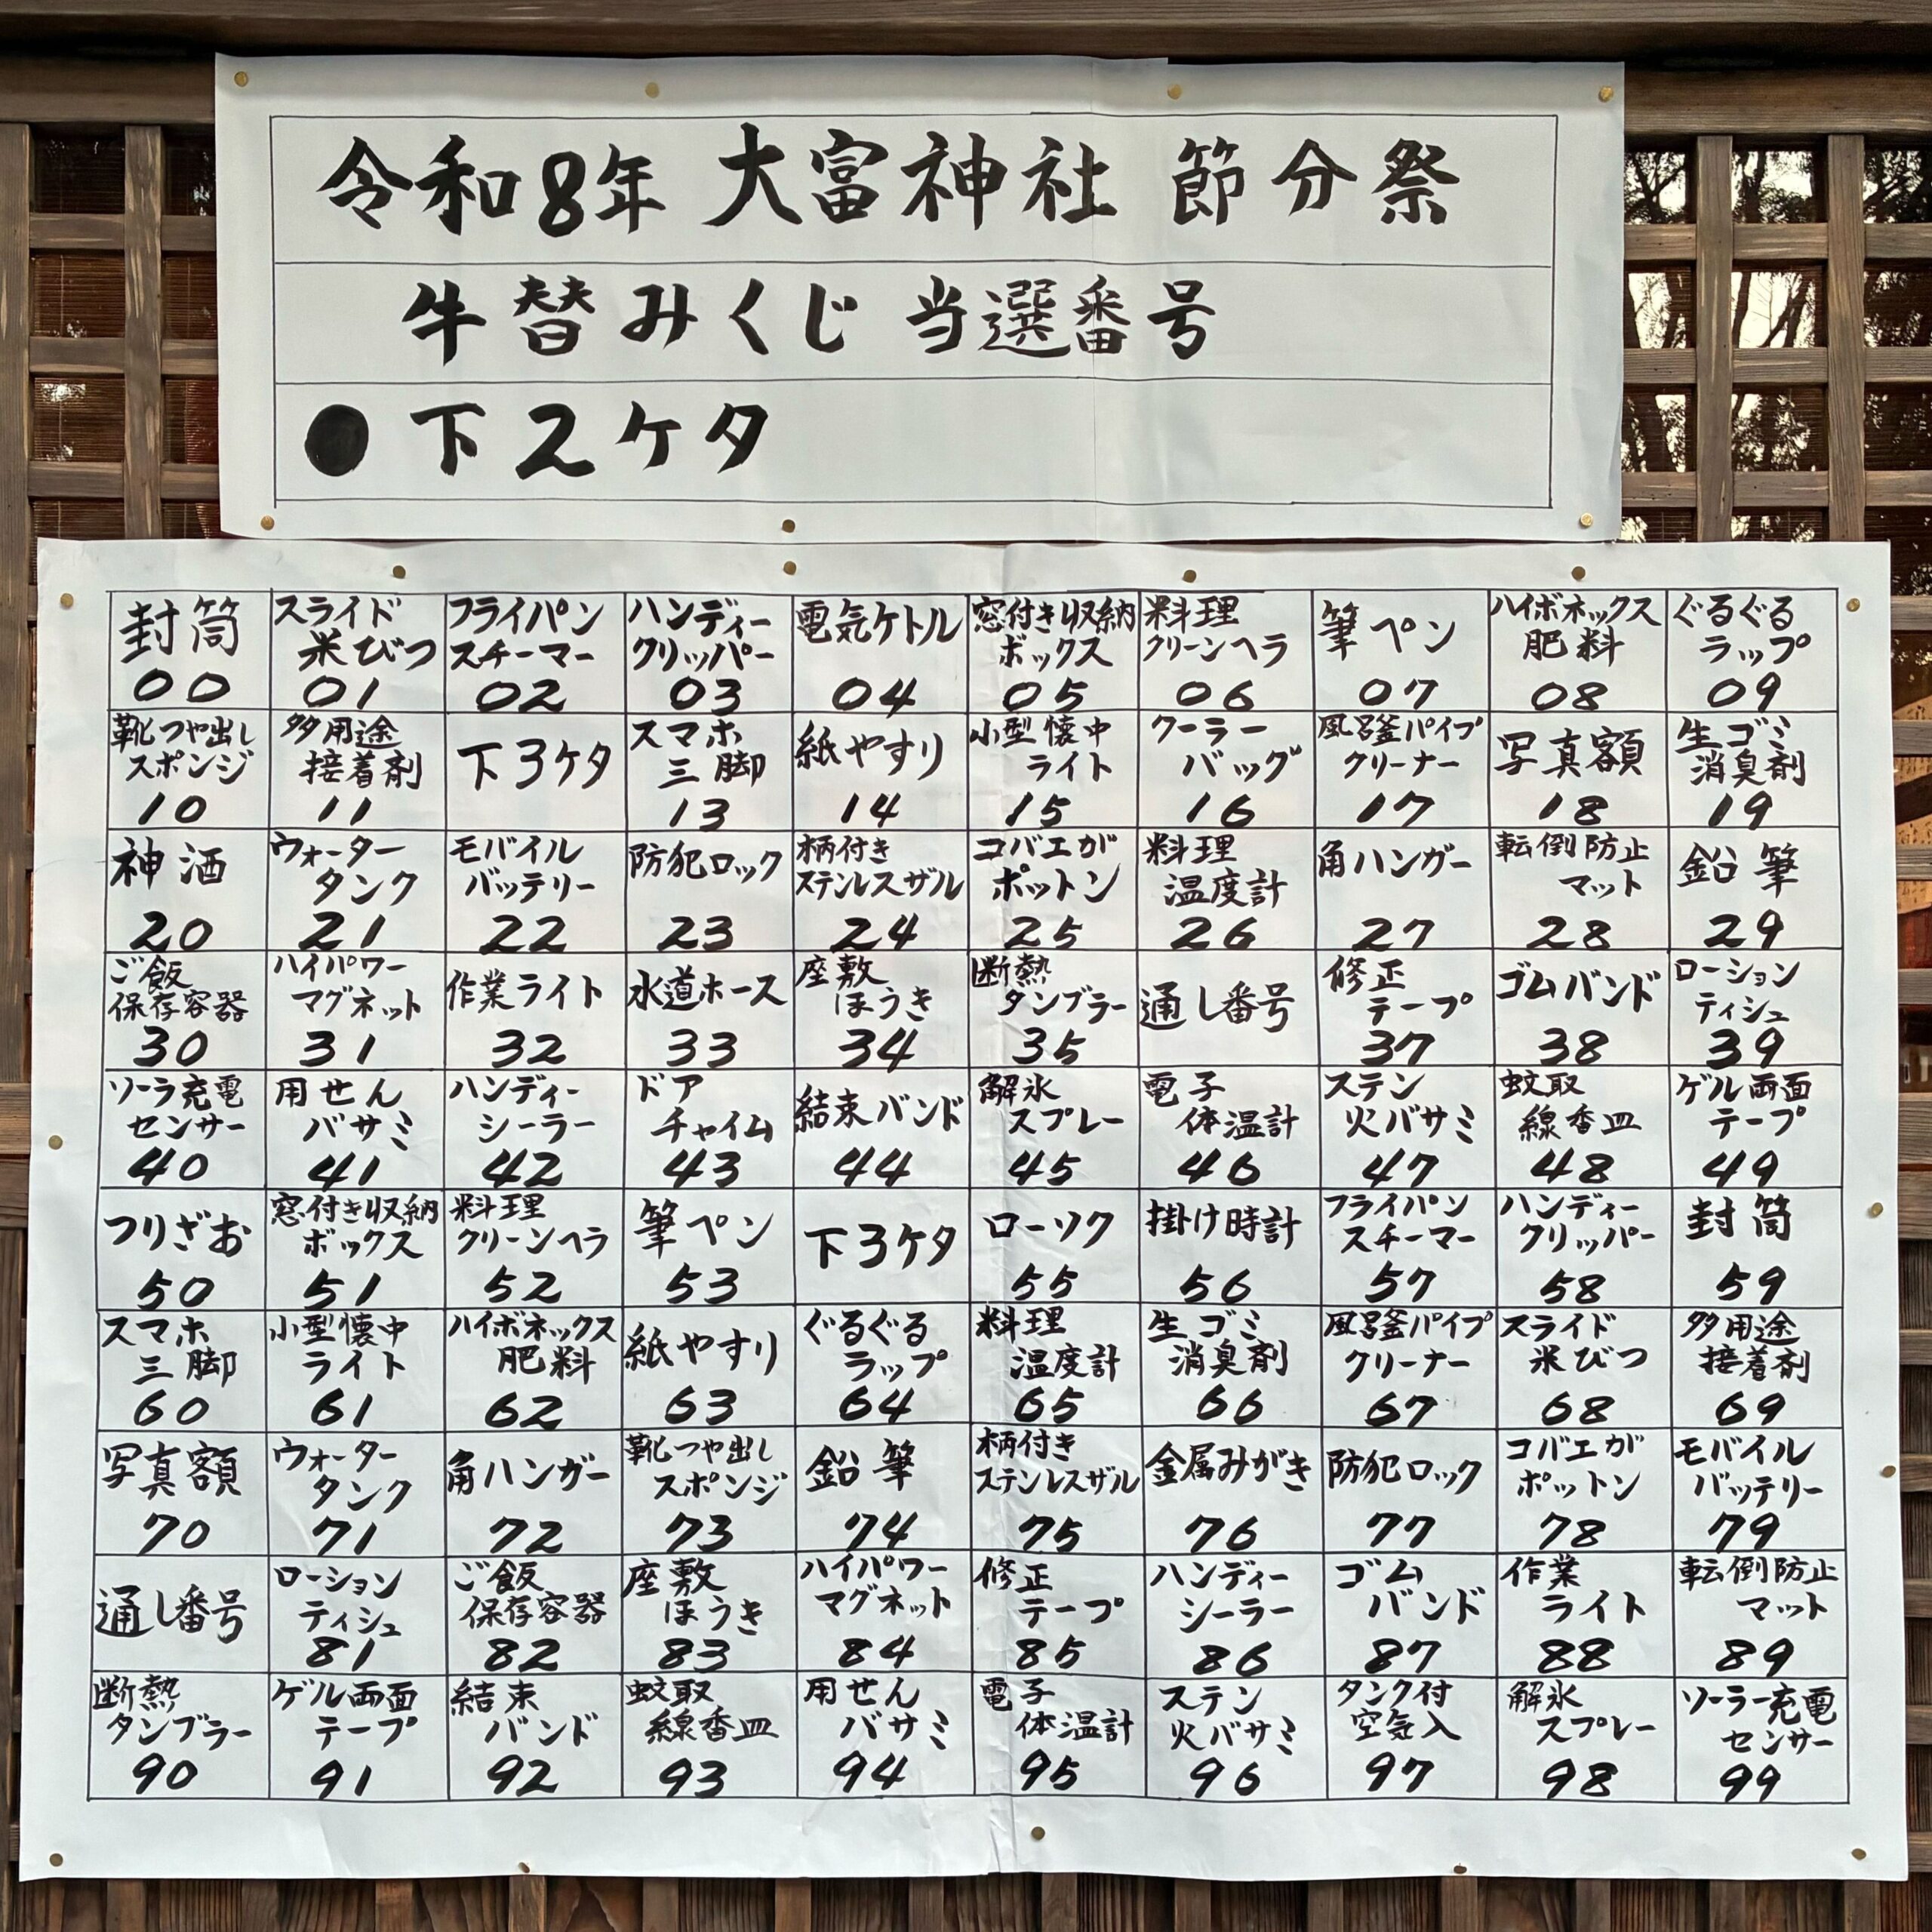 令和8年 大富神社 節分祭
牛替みくじ 当選番号
● 下2ケタ
封筒
00
スライド
米びつ
01
フライパン
スチーマー
02
ハンディー
クリッパー
03
電気ケトル
04
窓付き収納
ボックス
05
料理
クリーンヘラ
06
筆ペン
07
ハイボネックス
肥料
08
ぐるぐる
ラップ
09
靴つや出し
スポンジ
10
多用途
接着剤
11
下3ケタ
スマホ
三脚
13
紙やすり
14
小型懐中
ライト
15
クーラー
バッグ
16
風呂釜パイプ
クリーナー
17
写真額
18
生ゴミ
消臭剤
19
神酒
20
ウォーター
タンク
21
モバイル
バッテリー
22
防犯ロック
23
柄付き
ステンレスザル
24
コバエが
ポットン
25
料理
温度計
26
角ハンガー
27
転倒防止
マット
28
鉛筆
29
ご飯
保存容器
30
ハイパワー
マグネット
31
作業ライト
32
水道ホース
33
座敷
ほうき
34
断熱
タンブラー
35
通し番号
修正
テープ
37
ゴムバンド
38
ローション
ティシュ
39
ソーラ充電
センサー
40
用せん
バサミ
41
ハンディー
シーラー
42
ドア
チャイム
43
結束バンド
44
解氷
スプレー
45
電子
体温計
46
ステン
火バサミ
47
蚊取
線香皿
48
ゲル両面
テープ
49
つりざお
50
窓付き収納
ボックス
51
料理
クリーンヘラ
52
筆ペン
53
下3ケタ
ローソク
55
掛け時計
56
フライパン
スチーマー
57
ハンディー
クリッパー
58
封筒
59
スマホ
三脚
60
小型懐中
ライト
61
ハイボネックス
肥料
62
紙やすり
63
ぐるぐる
ラップ
64
料理
温度計
65
生ゴミ
消臭剤
66
風呂釜パイプ
クリーナー
67
スライド
米びつ
68
多用途
接着剤
69
写真額
70
ウォーター
タンク
71
角ハンガー
72
靴つや出し
スポンジ
73
鉛筆
74
柄付き
ステンレスザル
75
金属みがき
76
防犯ロック
77
コバエが
ポットン
78
モバイル
バッテリー
79
通し番号
ローション
ティシュ
81
ご飯
保存容器
82
座敷
ほうき
83
ハイパワー
マグネット
84
修正
テープ
85
ハンディー
シーラー
86
ゴム
バンド
87
作業
ライト
88
転倒防止
マット
89
断熱
タンブラー
90
ゲル両面
テープ
91
結束
バンド
92
蚊取
線香皿
93
用せん
バサミ
94
電子
体温計
95
ステン
火バサミ
96
タンク付
空気入
97
解氷
スプレー
98
ソーラー充電
センサー
99